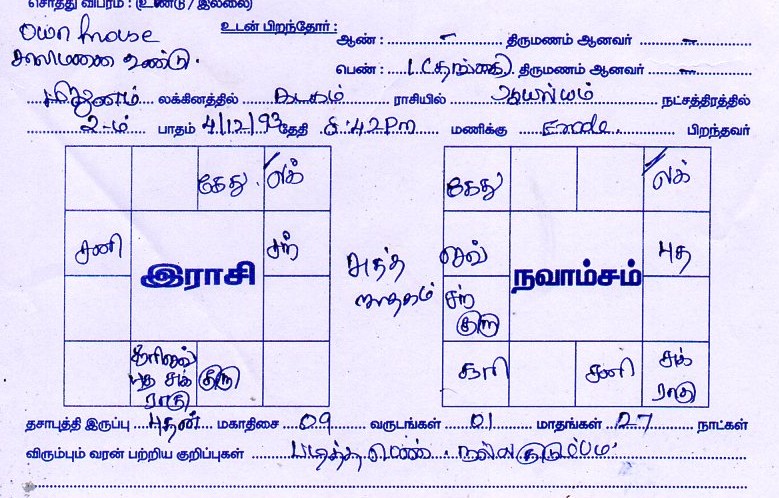 சொத்து விபரம் : (உண்டு / இல்லை)
Own house உடன் பிறந்தோர் :
உண்டு. ஆண் : – திருமணம் ஆனவர் –
பெண் : 1 (தங்கை) திருமணம் ஆனவர் –
மிதுனம் லக்கினத்தில் கடகம் ராசியில் ஆயில்யம் நட்சத்திரத்தில்
2-ம் பாதம் 4/12/93 தேதி 8:42 Pm மணிக்கு Erode. பிறந்தவர்
கேது லக்
சனி சந்
இராசி
சூரி செவ்
புத சுக் குரு
ராகு
சுத்த
ஜாதகம்
கேது லக்
செவ் புத
நவாம்சம்
சந்
குரு
சூரி சனி சுக்
ராகு
தசாபுத்தி இருப்பு புதன் மகாதிசை 09 வருடங்கள் 01 மாதங்கள் 27 நாட்கள்
விரும்பும் வரன் பற்றிய குறிப்புகள் படித்த பெண். நல்ல குடும்பம்